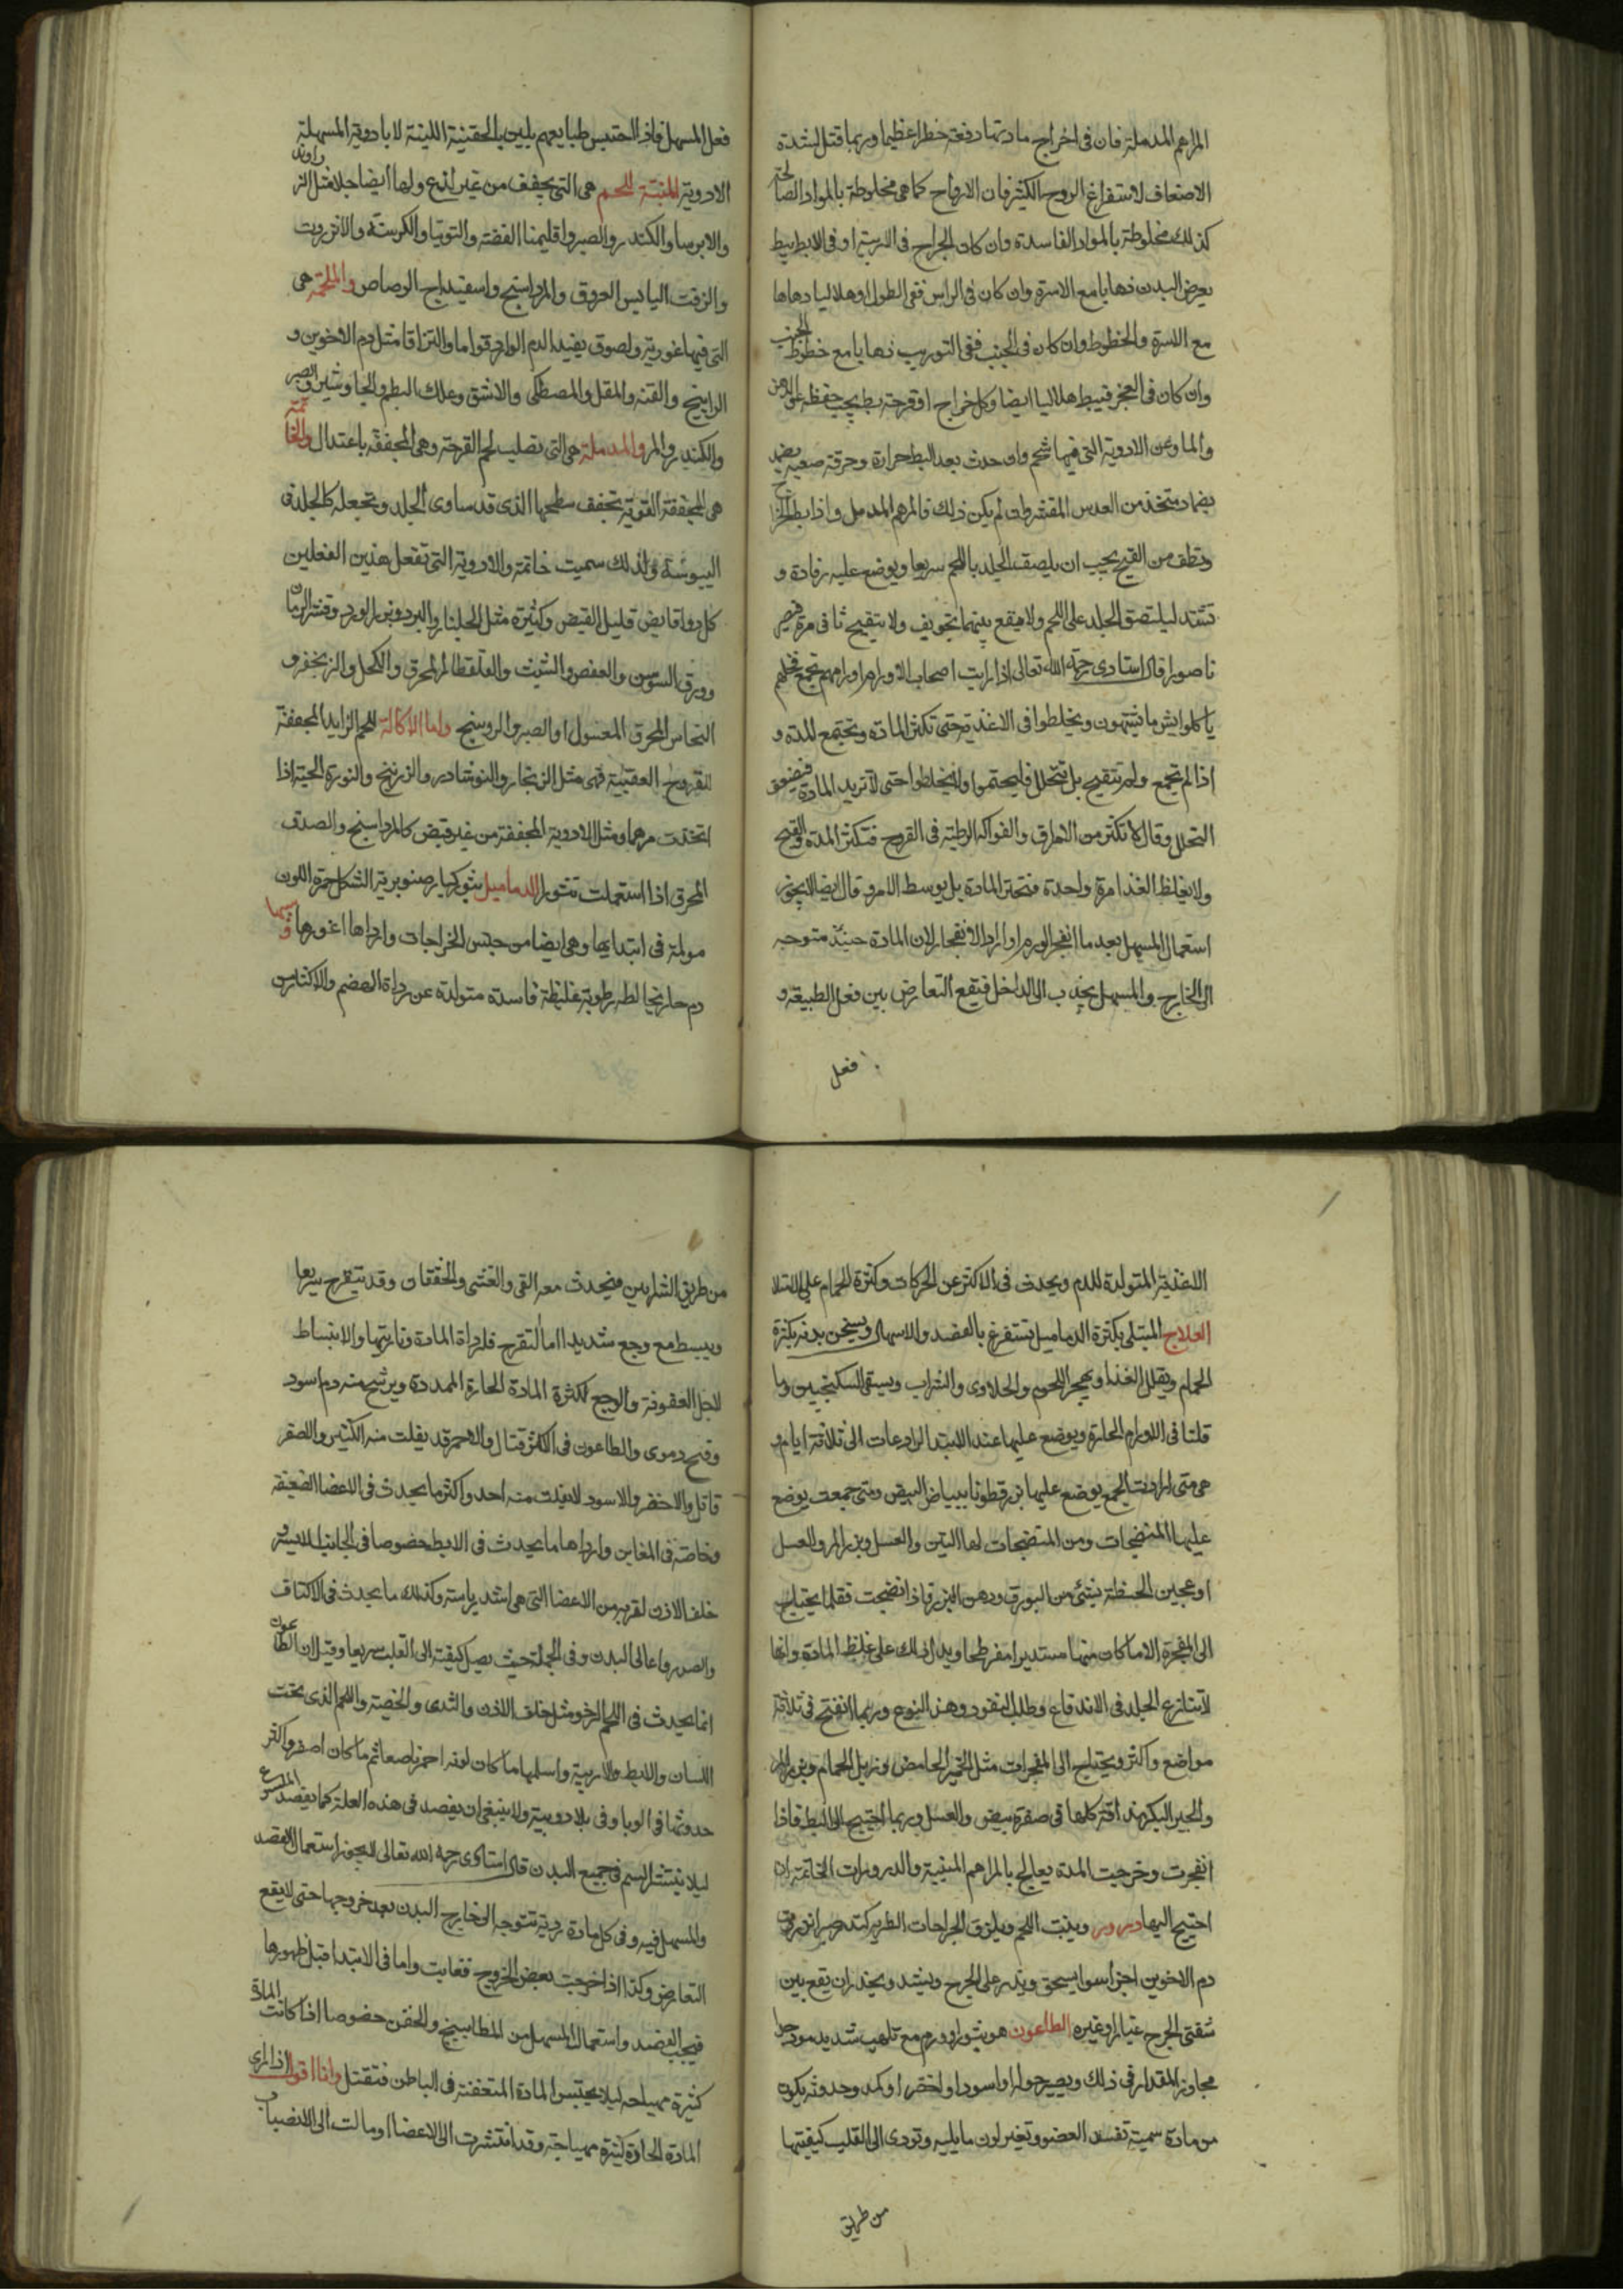 المراهم المدملة فان فى اخراج مادتها دفعة خطرا عظيما وربما قتل لشدة
الاضعاف لاستفراغ الروح الكثير فان الارواح كما هى مخلوطة بالمواد الصالحة
كذلك مخلوطة بالمواد الفاسدة وان كان الجراح فى الاربية او فى الابط يبط
بعرض البدن ذهابا مع الاسرة وان كان فى الراس ففى الطول او هلاليا دهابا
مع الاسرة والخطوط وان كان فى الجنب ففى التوريب ذهابا مع خطوط الجنب
وان كان فى العجز فيبط هلاليا ايضا وكل خراج او قرحة بط يجب حفظه عن الدهن
والما وعن الادوية التى فيها شحم وان حدث بعد البط حرارة وحرقة صعبة يضمد
بضماد متخذ من العدس المقشر وان لم يكن ذلك فالمرهم المدمل واذا بط الخراج
ونظف من القيح يجب ان يلصق الجلد باللحم سريعا ويوضع عليه رفادة و
تشد ليلتصق الجلد على اللحم ولا يقع بينهما تجويف ولا يتقيح ثانى مرة فيصير
ناصورا قال استادى رحمه الله تعالى اذا رايت اصحاب الاورام اورامهم تجمع فخلهم
ياكلوا ايش ما يشتهون ويخلطوا فى الاغذية حتى تكثر المادة وتجتمع المدة و
اذا لم تجمع ولم تتقيح بل تتحلل فليحتموا ولا يخلطوا حتى لا تزيد المادة فيضعف
التحلل وقال لا تكثر من الامراق والفواكه الرطبة فى القروح فتكثر المدة والقيح
ولا يغلظ الغذا مرة واحدة فتحتر المادة بل يوسط الامر وقال ايضا لا يجوز
استعمال المسهل بعد ما انفجر الورم او اراد الانفجار لان المادة حينئذ متوجه
الى الخارج والمسهل يجذب الى الداخل فتقع التعارض بين فعل الطبيعة و
فعل
فعل المسهل فاذا احتبس طبايعهم يلين بالحقنة اللينة لا بادوية المسهلة
الادوية المنبتة للحم هى التى تجفف من غير لذع ولها ايضا جلا مثل الزراوند
والايرسا والكندر والصبر واقليمنا الفضة والتوتيا والكرسنة والانزروت
والزفت اليابس العروق والمرداسنج واسفيداج الرصاص والملحمة هى
التى فيها غروية ولصوق يفيد الدم الوارد قواما والتزاقا مثل دم الاخوين و
الراتينج والقنه والمقل والمصطكى والاشق وعلك البطم والجاوشير والصبر
والكندر والمر والمدملة هى التى تصلب لحم القرحة وهى المجففة باعتدال والخاتمة
هى المجففة القوية تجفف سطحها الذى قد ساوى الجلد وتجعله كالجلد فى
اليبوسة ولذلك سميت خاتمة والادوية التى تفعل هذين الفعلين
كل دوا قابض قليل القبض وكثيره مثل الجلنار والبرد وبزر الورد وقشر الرمان
وورق السوسن والعفص والشبث والقلقطار المحرق والكحل والزنجفر و
النحاس المحرق المغسول او الصبر والروسنج واما الاكالة للحم الزايد المجففة
للقروح العفنة فهى مثل الزنجار والنوشادر والزرنيخ والنورة الحية اذا
اتخذت مرهما ومثل الادوية المجففة من غير قبض كالمرداسنج والصدف
المحرق اذا استعملت نثورا الدماميل بثور كبار صنوبرية الشكل حمر اللون
مولمة فى ابتدايها وهى ايضا من جنس الخراجات وارداها اغورها وسببها
دم حار يخالطه رطوبة غليظة فاسدة متولدة عن رداة الهضم والاكثار من
الاغذية المتولدة للدم ويحدث فى الاكثر عن الحركات وكثرة الحمام على الامتلا
العلاج المبتلى بكثرة الدماميل تستفرغ بالفصد والاسهال ويسخن بدنه بكثرة
الحمام ويقلل الغذا ويهجر اللحوم والحلاوى والشراب ويسقى السكنجبين وما
قلنا فى الاورام الحارة ويوضع عليها عند الابتدا الرادعات الى ثلاثة ايام و
هى متى ارادت الجمع يوضع عليها بزر قطونا ببياض البيض ومتى جمعت يوضع
عليها المنضجات ومن المنضجات لها التين والعسل وبزر المر والعسل
او عجين الحنطة بشئ من البورق ودهن البزر فاذا انضجت فقلما يحتاج
الى المفجرة الا ما كان منها مستديرا مفرطحا ويدل ذلك على غلظ المادة وانها
لا تنازع الجلد فى الاندفاع وطلب النفود وهذا النوع وربما انفتح فى ثلاثة
مواضع واكثر ويحتاج الى المفجرات مثل الخمير الحامض وزبل الحمام وبزر المر
والجير البكر هذه افة كلها فى صفرة بيض والعسل وربما احتيج الى البط فاذا
انفجرت وخرجت المدة يعالج بالمراهم المنبتة والدرورات الخاتمة اذا
احتيج اليها درور وينبت اللحم ويلزق الجراحات الطرية كندر صبر انزروت
دم الاخوين اجزا سوا يسحق ويذر على الجرح ويشد ويحذر ان يقع بين
شفتى الجرح غبار او غيره الطاعون هو بثور او ورم مع تلهب شديد موذ جدا
مجاوز المقدار فى ذلك ويصير حوله او اسود او اخضر او كمد وحدوثه يكون
من مادة سمية تفسد العضو وتغير لون ما يليه وتودى الى القلب كيفيتها
من طريق
من طريق الشرايين فيحدث معه القى والغشى والخفقان وقد يتقرح سريعا
ويبسط مع وجع شديد اما التقرح فلرداة المادة وناريتها والانبساط
لاجل العفونة والوجع لكثرة المادة الحارة الممددة ويرشح منه دم اسود
وقيح دموى والطاعون فى الاكثر قتال والاحمر قد يفلت منه الكثير والاصفر
قاتل والاخضر والاسود لا يفلت منه احد واكثر ما يحدث فى الاعضا الضعيفة
وخاصة فى المغابن وارداها ما يحدث فى الابط خصوصا فى الجانب الايسر و
خلف الاذن لقربه من الاعضا التى هى اشد رياسة وكذلك ما يحدث فى الاكتاف
والصدر واعالى البدن وفى الجملة حيث يصل كيفيته الى القلب سريعا وقيل ان الطاعون
انما يحدث فى اللحم الرخو مثل خلف الاذن والثدى والخصية واللحم الذى تحت
اللسان والابط والاربية واسلمها ما كان لونه احمر ناصعا ثم ما كان اصفر واكثر
حدوثها فى الوبا وفى بلاد وبية ولا ينبغى ان يفصد فى هذه العلة كما يفصد
ليلا ينتشر السم فى جميع البدن قال استادى رحمه الله تعالى لا يجوز استعمال الفصد
والمسهل فيه وفى كل مادة ردية تتوجه الى خارج البدن بعد خروجها حتى لا يقع
التعارض وكذا اذا خرجت بعض الخروج فغابت واما فى الابتدا قبل ظهورها
فيجب الفصد واستعمال المسهل من المطابيخ والحقن خصوصا اذا كانت المادة
كثيرة مهياجه ليلا يحتبس المادة المتعفنة فى الباطن فتقتل وانا اقول اذا ارى
المادة الحارة كثيرة مهياجة وقد انتشرت الى الاعضا او مالت الى الانصباب